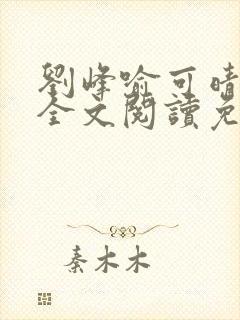 劉峰喻可晴
全文閱讀免
秦木木